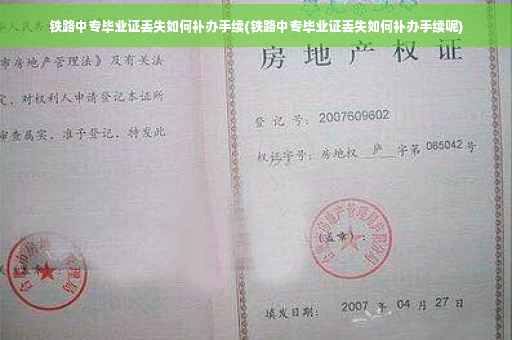 铁路中专毕业证丢失如何补办手续(铁路中专毕业证丢失如何补办手续呢)
市房地产管理法》及有关法
定，对权利人申请登记本证所
审查属实，准予登记，特发此
房地产权
登记号：2007609602
权证字号：房地权 庐 字第 065042 号
(盖章)：
填发日期：2007 年 04 月 27 日